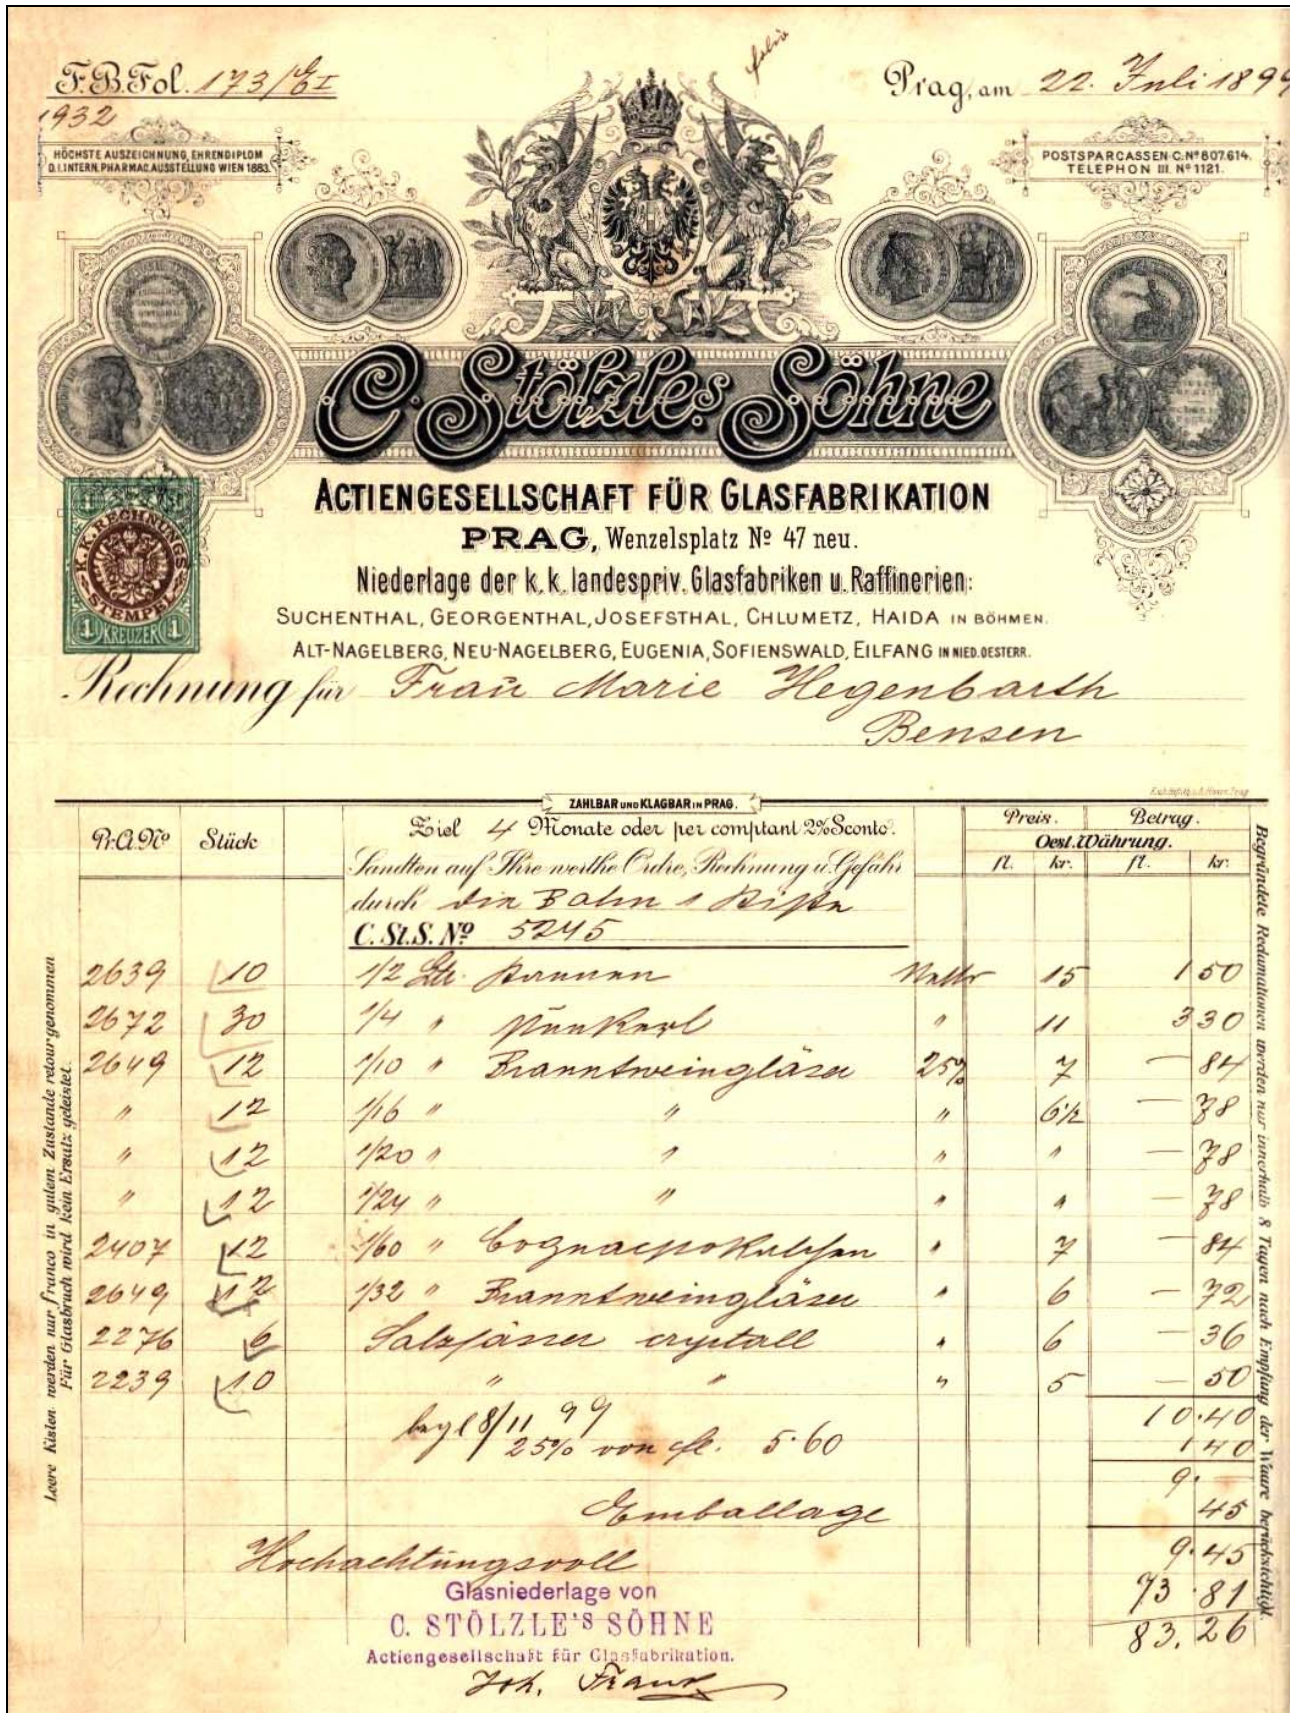 F.B.Fol. 173/
1932
Prag, am 22. Juli 1899
HÖCHSTE AUSZEICHNUNG, EHRENDIPLOM
D. I. INTERN. PHARMAC. AUSSTELLUNG WIEN 1883.
POSTSPARCASSEN-C. Nº 807.614.
TELEPHON III. Nº 1121.
C. Stölzle's Söhne
ACTIENGESELLSCHAFT FÜR GLASFABRIKATION
PRAG, Wenzelsplatz Nº 47 neu.
Niederlage der k. k. landespriv. Glasfabriken u. Raffinerien:
SUCHENTHAL, GEORGENTHAL, JOSEFSTHAL, CHLUMETZ, HAIDA IN BÖHMEN.
ALT-NAGELBERG, NEU-NAGELBERG, EUGENIA, SOFIENSWALD, EILFANG IN NIED. OESTERR.
K. K. RECHNUNGS STEMPEL
1 KREUZER 1
Rechnung für Frau Marie Hegenbarth
Bensen
ZAHLBAR UND KLAGBAR IN PRAG.
Pr.C.Nº Stück Ziel 4 Monate oder per comptant 2% Sconto. Preis. Betrag.
Oest. Währung.
fl. kr. fl. kr.
Sandten auf Ihre werthe Ordre, Rechnung u. Gefahr
durch die Bahn 1 Kiste
C. St. S. Nº 5245
2639 10 1/2 Ltr. Kannen Netto 15 1 50
2672 30 1/4 " 11 3 30
2649 12 1/10 " Branntweingläser 25% 7 — 84
" 12 1/16 " " " 6 1/2 — 78
" 12 1/20 " " " " — 78
" 12 1/24 " " " " — 78
2407 12 1/60 " Cognacpokalchen " 7 — 84
2649 12 1/32 " Branntweingläser " 6 — 72
2276 6 Salzfässer crystall " 6 — 36
2239 10 " " " 5 — 50
10.40
8/11 99
25% von fl. 5.60 1 40
9.—
Emballage 45
Hochachtungsvoll 9.45
73.81
83.26
Glasniederlage von
C. STÖLZLE'S SÖHNE
Actiengesellschaft für Glasfabrikation.
Joh.
Leere Kisten werden nur franco in gutem Zustande retour genommen
Für Glasbruch wird kein Ersatz geleistet.
Begründete Reclamationen werden nur innerhalb 8 Tagen nach Empfang der Waare berücksichtigt.